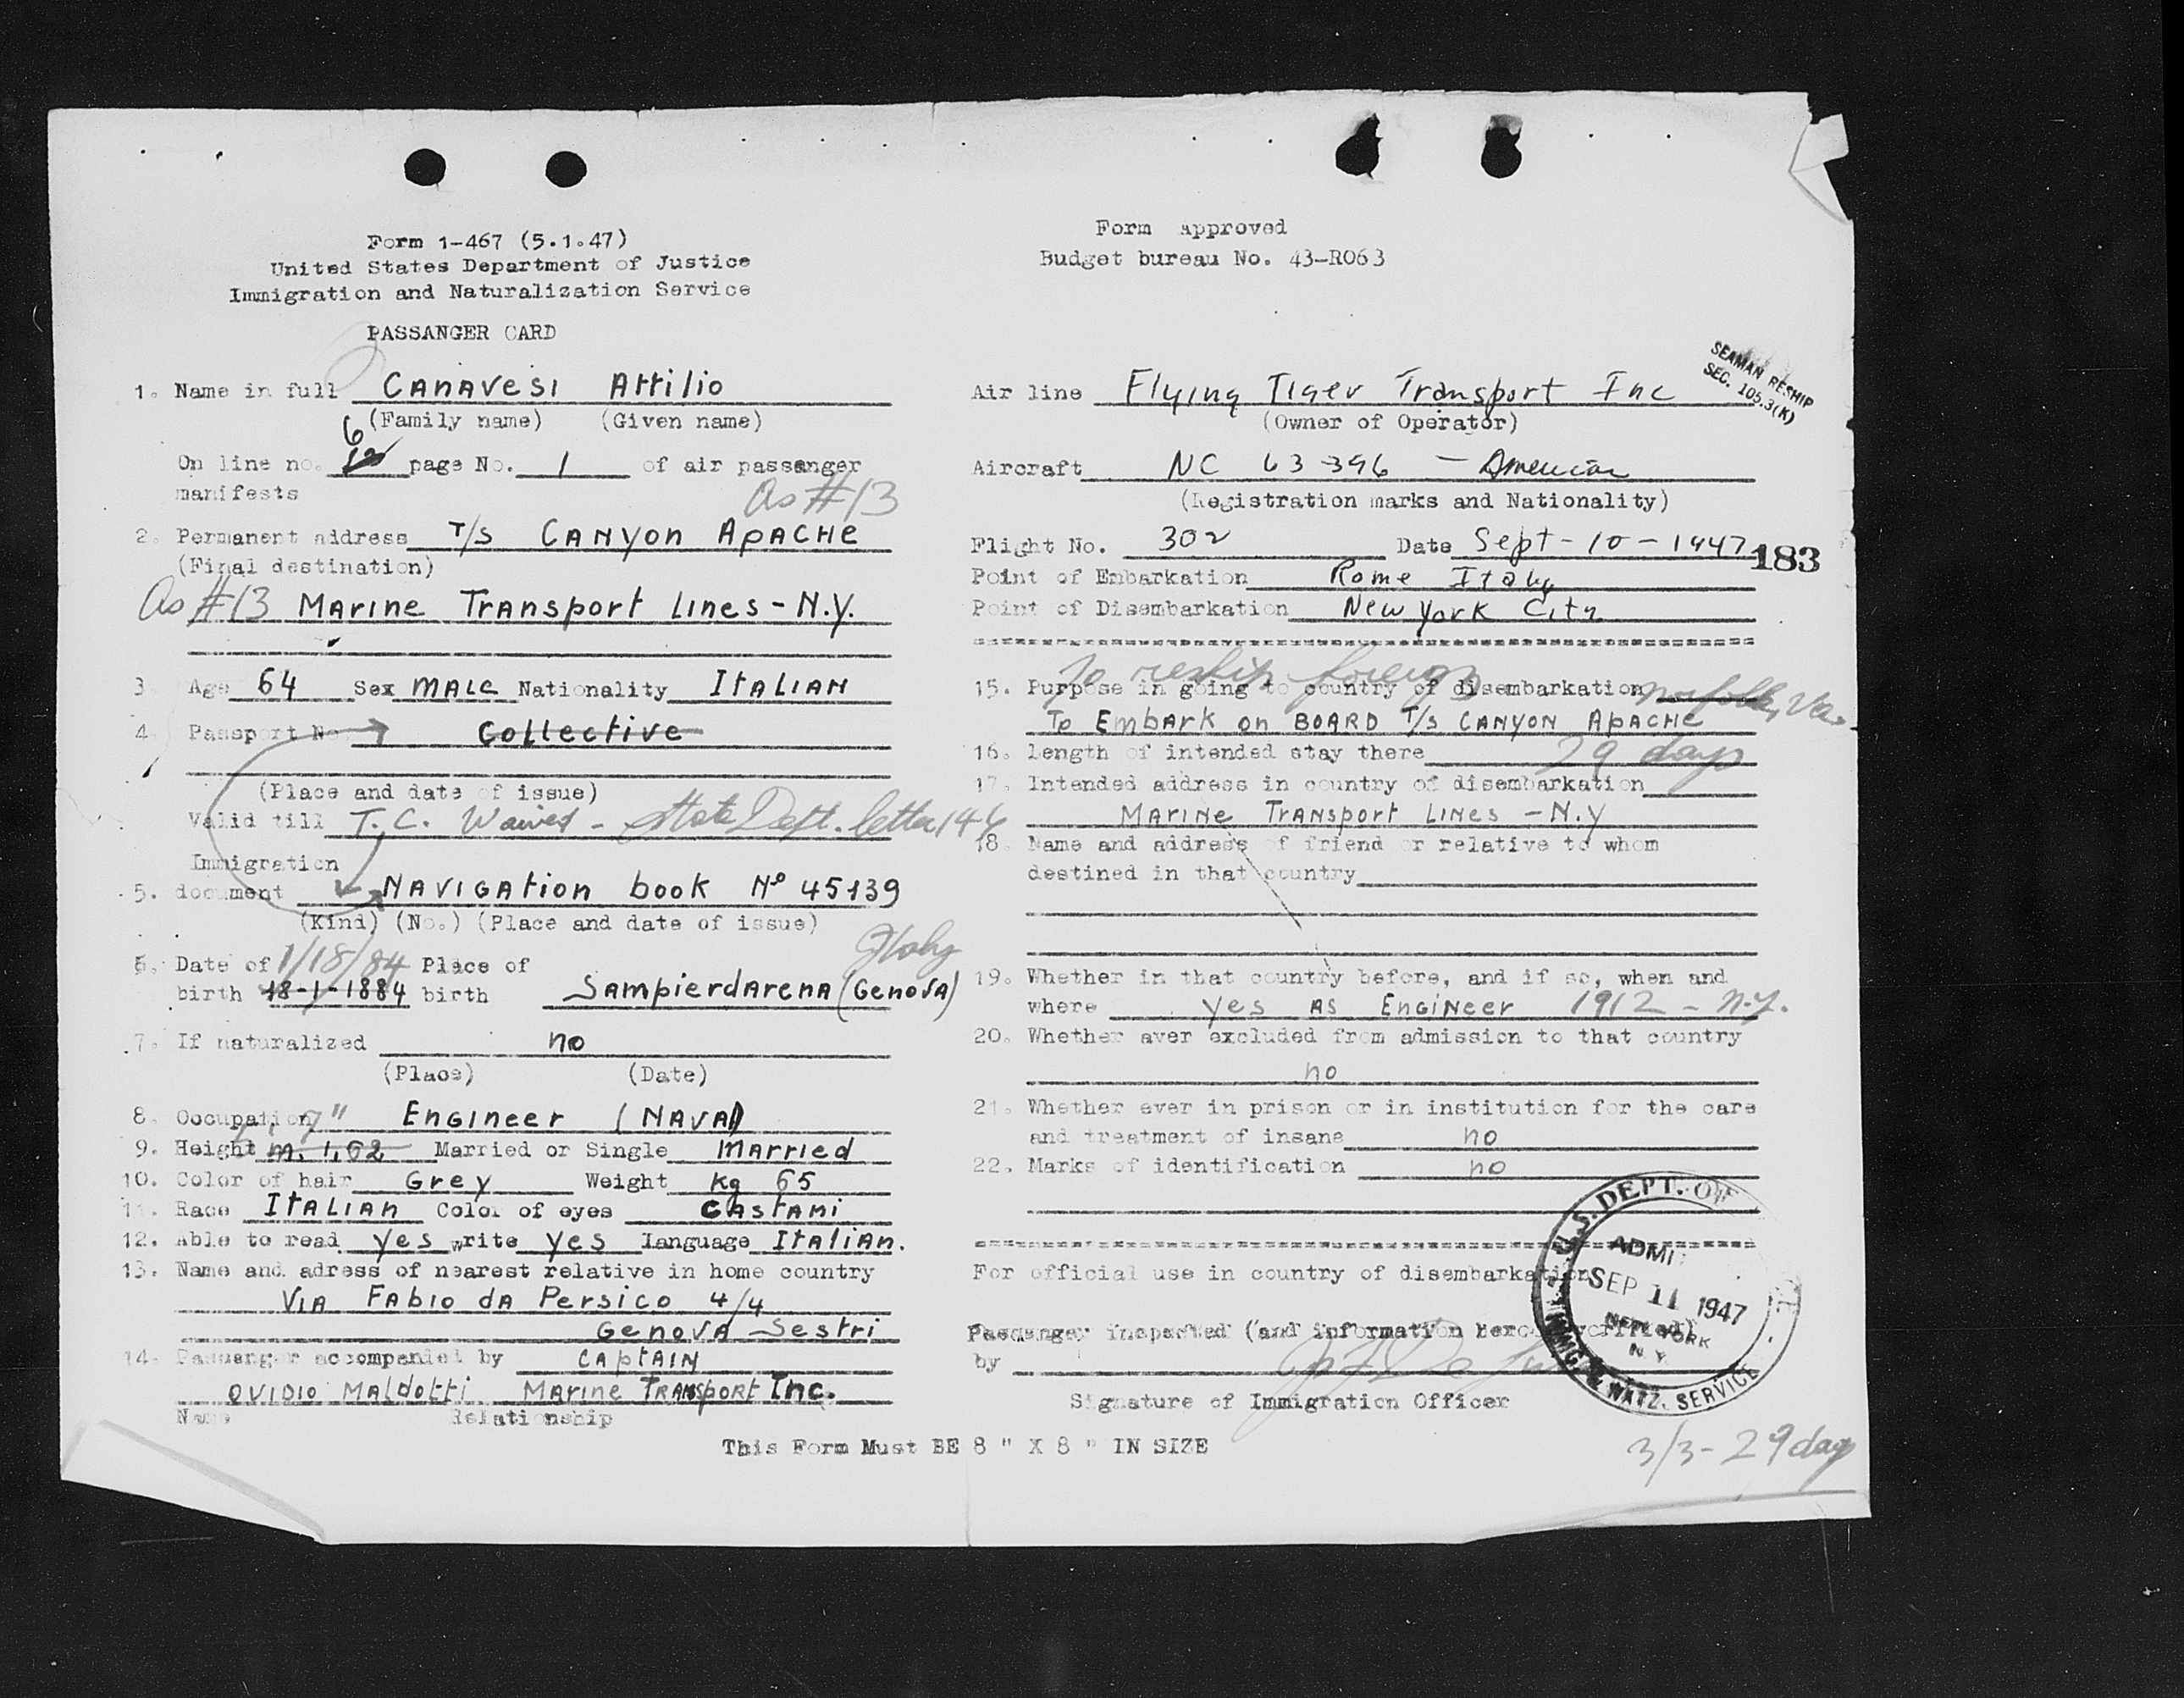 Form 1-467 (5.1.47)
United States Department of Justice
Immigration and Naturalization Service
PASSANGER CARD
1. Name in full CANAVESI Attilio
(Family name) (Given name)
6
On line no. page No. 1 of air passanger
manifests
As #13
2. Permanent address T/S CANYON APACHE
(Final destination)
As #13 MARINE TRANSPORT LINES - N.Y.
3. Age 64 Sex MALE Nationality ITALIAN
4. Passport No. Collective
(Place and date of issue)
Valid till T.C. Waived - State Dept. letter 146
Immigration
5. document NAVIGATION book No 45139
(Kind) (No.) (Place and date of issue)
Italy
6. Date of 1/18/84 Place of
birth 18-1-1884 birth Sampierdarena (Genova)
7. If naturalized no
(Place) (Date)
8. Occupation ENGINEER (NAVAL)
9. Height m. 1,62 Married or Single Married
10. Color of hair Grey Weight Kg 65
11. Race ITALIAN Color of eyes CASTANI
12. Able to read Yes write Yes language ITALIAN.
13. Name and adress of nearest relative in home country
VIA FABIO DA PERSICO 4/4
GENOVA - Sestri
14. Passenger accompanied by CAPTAIN
OVIDIO MALDOTTI MARINE TRANSPORT Inc.
Name Relationship
This Form Must BE 8 " X 8 " IN SIZE
Form approved
Budget bureau No. 43-R063
SEAMAN RESHIP
SEC. 105.3(K)
Air line Flying Tiger Transport Inc
(Owner of Operator)
Aircraft NC 63396 - American
(Registration marks and Nationality)
Flight No. 302 Date Sept - 10 - 1947
183
Point of Embarkation Rome Italy
Point of Disembarkation New York City
To reship foreign
15. Purpose in going to country of disembarkation Norfolk, Va.
To EMBARK on BOARD T/S CANYON APACHE
16. length of intended stay there 29 days
17. Intended address in country of disembarkation
MARINE TRANSPORT LINES - N.Y
18. Name and address of friend or relative to whom
destined in that country
19. Whether in that country before, and if so, when and
where Yes AS ENGINEER 1912 - N.Y.
20. Whether aver excluded from admission to that country
no
21. Whether ever in prison or in institution for the care
and treatment of insane no
22. Marks of identification no
For official use in country of disembarkation
Passanger inspected (and information hereon verified)
by
Signature of Immigration Officer
U.S. DEPT. OF
ADMIT
SEP 11 1947
NEW YORK
N.Y.
IMMIG. & NATZ. SERVICE
3/3 - 29 days